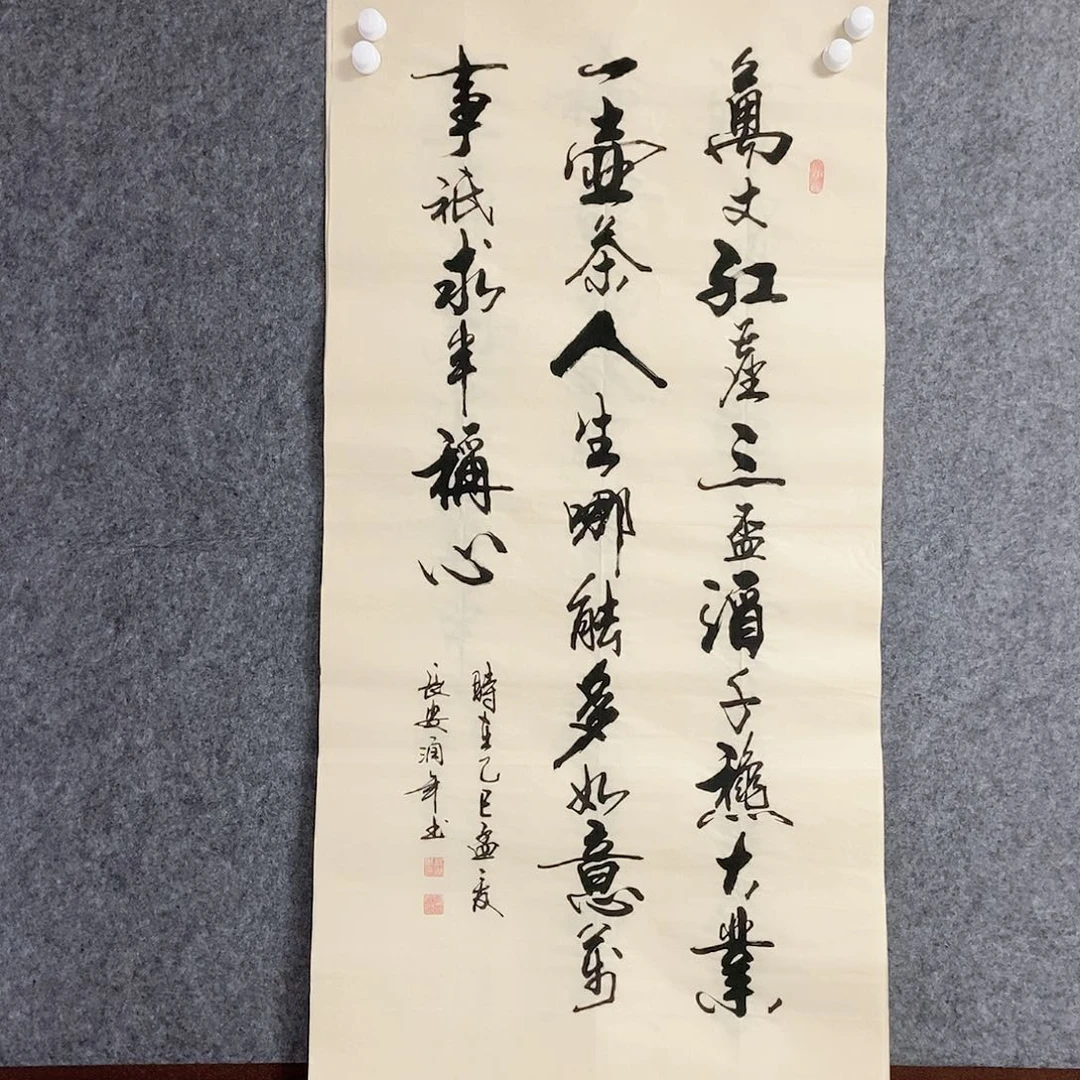 萬丈紅塵三盃酒千龝大業
一壺茶人生哪能多如意萬
事祇求半稱心
時在乙巳孟夏
長安潤年書